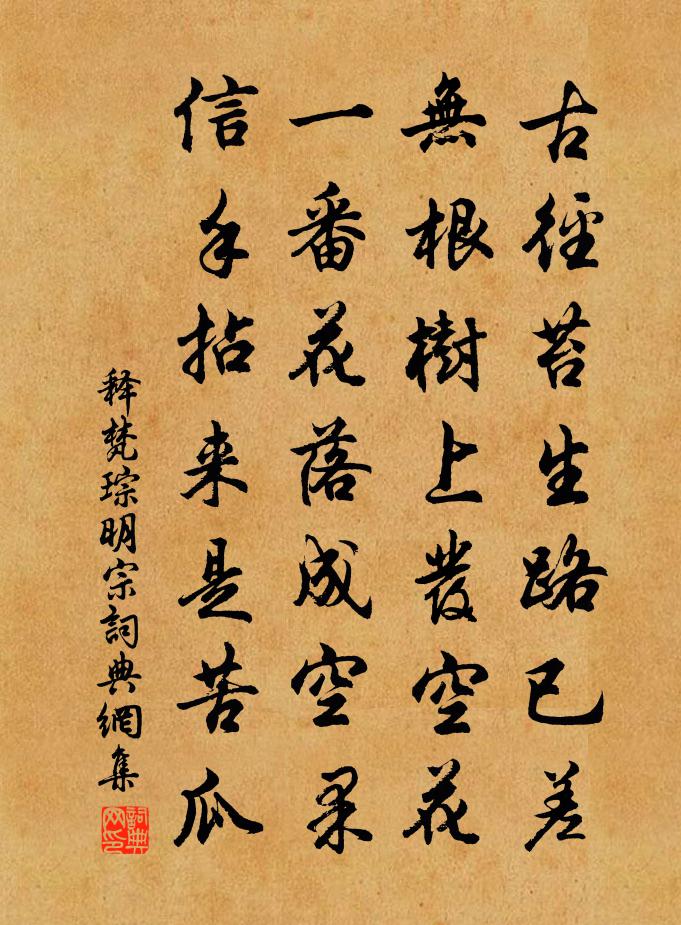 古徑苔生路已差
無根樹上發空花
一番花落成空果
信手拈来是苦瓜
释梵琮明宗詞典網集
詞典网印